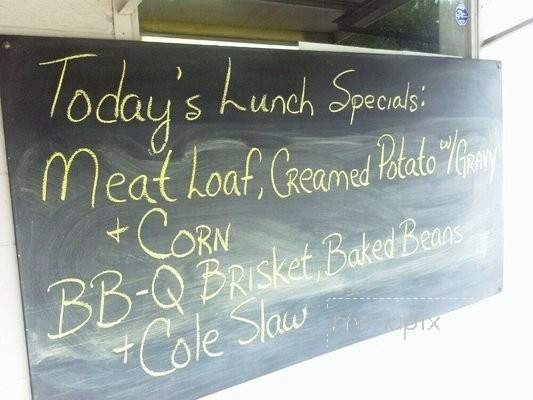 Today's Lunch Specials:
Meat Loaf, Creamed Potato w/ Gravy
+ Corn
BB-Q Brisket, Baked Beans
+ Cole Slaw